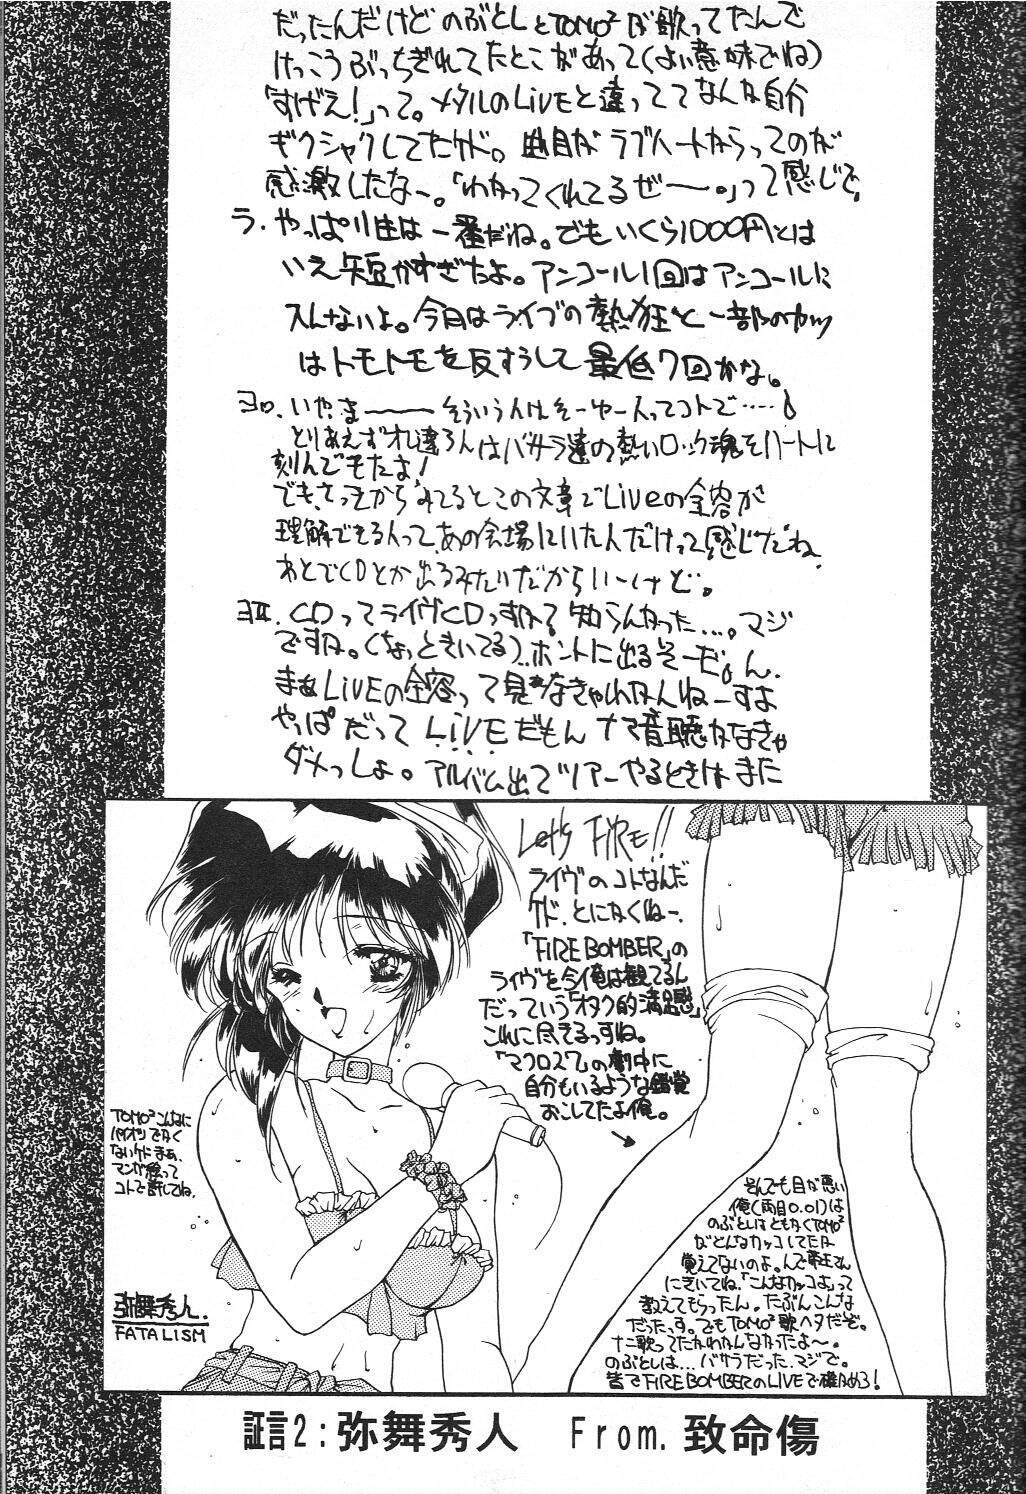 だったんだけど のぶとしとTOMO²が歌ってたんで
けっこうぶっちぎれてたとこがあって(よい意味でね)
「すげえ!」って。メタルのLiVEと違っててなんな自分
ギクシャクしてたケド。曲目がラブハートからってのが
感激したなー。「わかってくれてるぜー。」って感じで。
ラ. やっぱ川住は一番だね。でもいくら1000円とは
いえ短かすぎたよ。アンコール1回はアンコールに
入んないよ。今日はライブの熱狂と一部のヤツ
はトモトモを反すうして最低7回かな。
ヨロ. いやまーーそういう人はそーゆー人ってコトで……
とりあえずオレ達ろんはバサラ達の熱いロック魂をハートに
刻んでもたよ!
できさっきからみてるとこの文章でLiveの全容が
理解できる人って、あの会場にいた人だけって感じだね
あとでCDとか出るみたいだからいーけど。
ヨII. CDってライヴCDっすね? 知らんかった…。マジ
ですね。(ちょっときいてる)..ホントに出るそーだ。ん.
まぁLiVEの全容って見なきゃわかんねーすよ
やっぱだって LiVEだもん ナマ音聴かなきゃ
ダメっしょ。アルバム出てツアーやるときはまた
Let's FIRE!!
ライヴのコトなんだ
ケド、とにかくねー、
「FIRE BOMBER」の
ライヴを今俺は観てるん
だっていう「オタク的満足感」
これに尽きるっすね。
「マクロス7」の劇中に
自分もいるような錯覚
おこしてたよ俺。
TOMO²こんなに
パイオツでかく
ないケド まあ、
マンガ絵って
コトで許してね。
弥舞秀人.
FATALISM
そんでも目が悪い
俺(両目0.01)は
のぶとしはともかくTOMO²
がどんなカッコしてたか
覚えてないのよ。んで弟王さん
にきいてね、「こんなカッコよ」って
教えてもらったん。たぶんこんな
だったっす。でもTOMO²歌ヘタだぞ。
ナニ歌ってたかわかんなかったよ〜。
のぶとしは…バサラだった、マジで。
皆でFIRE BOMBERのLIVEで確かめろ!
証言2:弥舞秀人 From. 致命傷